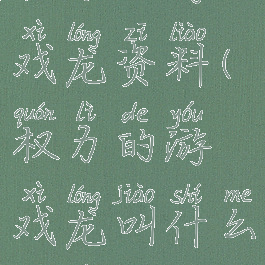 xì lóng zī liào
戏龙资料(
quán lì de yóu
权力的游
xì lóng jiào shí me
戏龙叫什么